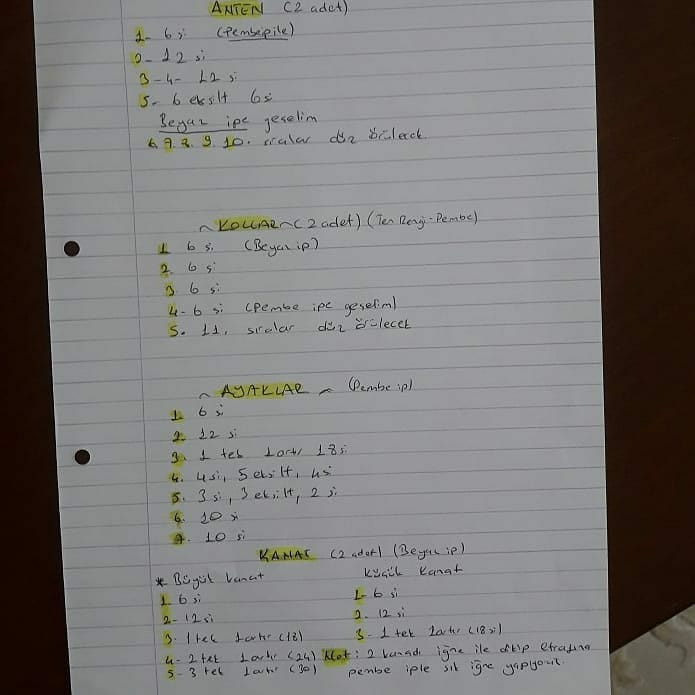 ANTEN (2 adet)
1- 6 si (Pembe iple)
2- 12 si
3-4- 12 si
5- 6 eksilt 6 si
Beyaz ipe geçelim
6. 7. 8. 9. 10. sıralar düz örülecek
~ KOLLAR ~ (2 adet) (Ten Rengi-Pembe)
1. 6 si (Beyaz ip)
2. 6 si
3. 6 si
4- 6 si (Pembe ipe geçelim)
5. 11. sıralar düz örülecek
~ AYAKLAR ~ (Pembe ip)
1. 6 si
2. 12 si
3. 1 tek 1 artır 18 si
4. 4 si, 5 eksilt, 4 si
5. 3 si, 3 eksilt, 2 si
6. 10 si
7. 10 si
KANAT (2 adet) (Beyaz ip)
* Büyük kanat Küçük Kanat
1. 6 si 1- 6 si
2- 12 si 2- 12 si
3- 1 tek 1 artır (18) 3- 1 tek 1 artır (18 si)
4- 2 tek 1 artır (24) Not: 2 kanadı iğne ile dikip etrafına
5- 3 tek 1 artır (30) pembe iple sık iğne yapıyoruz.